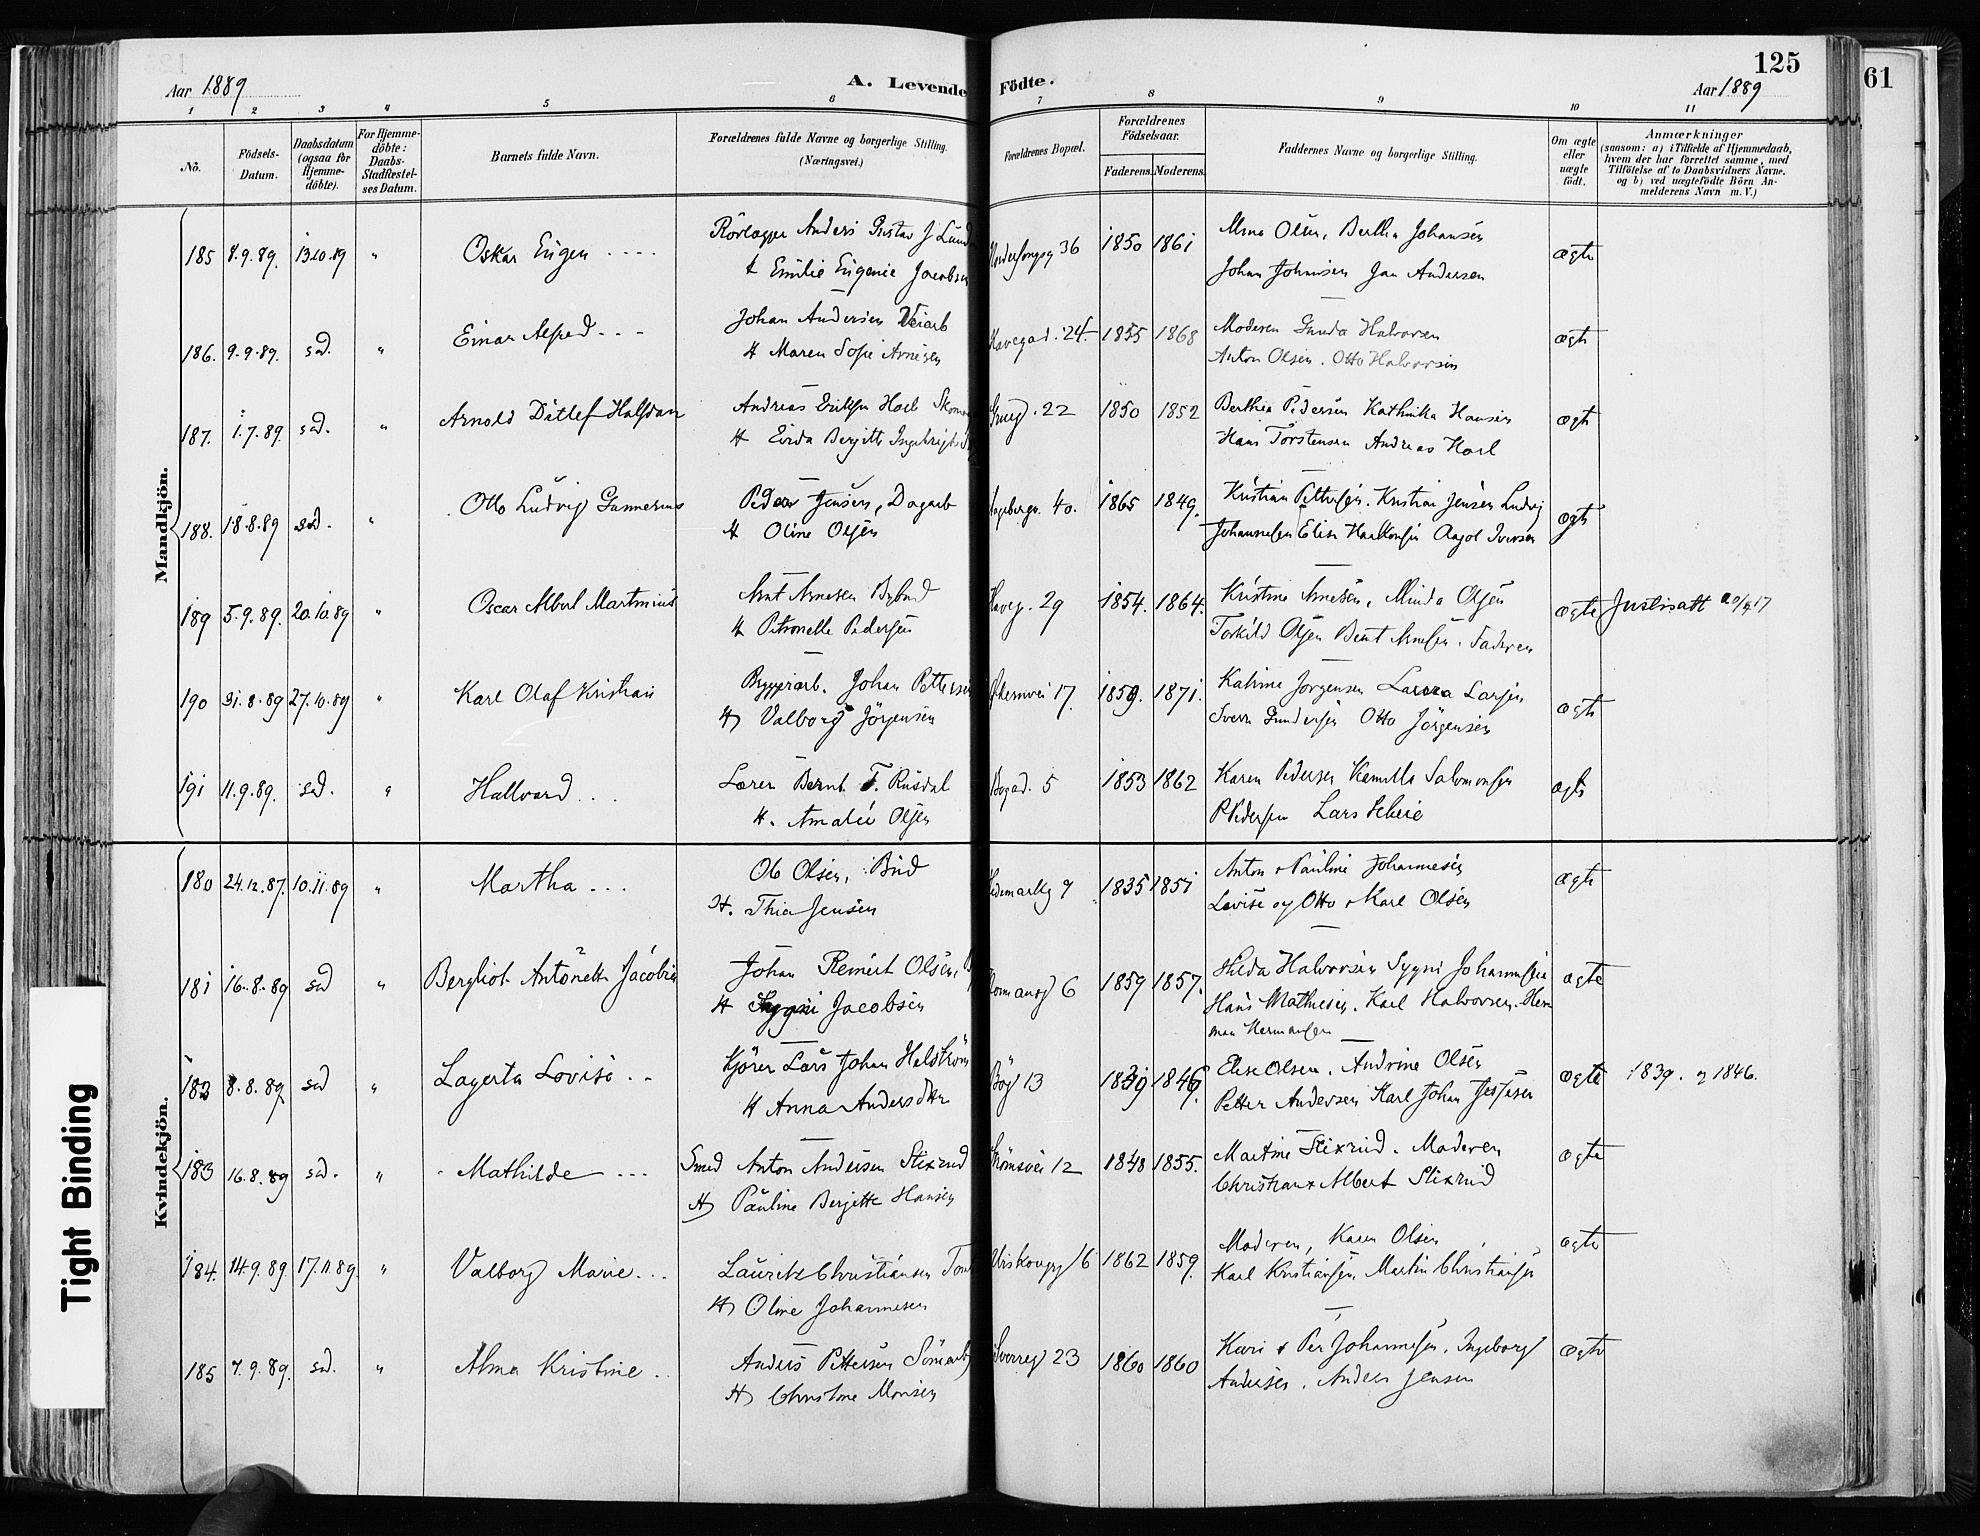 125
61
Aar 1889
A. Levende Födte.
Aar 1889
1 2 3 „ 5 6 7 8 9 10 11
No.
Födsels-Datum.
Daabsdatum (ogsaa for Hjemme-döbte).
For Hjemme-döbte: Daabs-Stadfæstel-ses Datum.
Barnets fulde Navn.
Forældrenes fulde Navne og borgerlige Stilling.
(Næringsvei.)
Forældrenes Bopæl.
Forældrenes Födselsaar.
Faderens. Moderens.
Faddernes Navne og borgerlige Stilling.
Om ægte eller uægte födt.
Anmærkninger
(saasom: a) i Tilfælde af Hjemmedaab,
hvem der har forrettet samme, med
Tilföielse af to Daabsvidners Navne.
og b) ved uægtefödte Börn An-
melderens Navn m. V.)
Mandkjön.
185 8.9.89. 13.10.89 „ Oskar Eugen Anders Gustav J 36 1850 1861 Olsen, Bertha Johansen ægte
& Emilie Eugenie Jacobsen Johan Johansen Jan Andersen
186. 9.9.89. sd. „ Einar Alfred Johan Andersen Veiarb Havegad. 24. 1855 1868 Moderen Gunda Halvorsen ægte
H Maren Sofie Arnesen Anton Olsen. Otto Halvorsen
187. 1.7.89. sd. „ Arnold Ditlef Halfdan Andreas Hoel 22 1850 1852 Berthea Pedersen Kathinka Hansen ægte
H Berjitte Hans Torstensen Andreas Hoel
188. 18.8.89 sd. „ Otto Ludvig Gunnerius Peder Jensen, Dagarb 40. 1865 1849. Kristian Pettersen. Kristian Jensen Ludvig ægte
H Oline Olsen Johannesen Elise Haakonsen Aagot Iversen
189 5.9.89. 20.10.89 „ Oscar Albert Martinius Arnt Arnesen Bybud Haveg. 29 1854. 1864. Kristine Arnesen, Minda Olsen ægte Justisatt 20/4 17
H Petronelle Pedersen Torkild Olsen Bent Arnesen. Faderen
190 31.8.89 27.10.89 „ Karl Olaf Kristian Bryggeriarb. Johan Pettersen Økernvei 17. 1859. 1871. Katrine Jørgensen Laura Larsen ægte
H Valborg Jörgensen Sverre Gundersen Otto Jörgensen
191 11.9.89. sd. „ Hallvard Lærer Bernt T. Rusdal Bogad. 5 1853 1862 Karen Pedersen Kamilla Salomonsen ægte
H. Amalie Olsen P Pedersen Lars Scheie
Kvindekjön.
180 24.12.87. 10.11.89 „ Martha Ole Olsen, Bud Hedemarkg 9 1835 1851 Anton & Pauline Johannesen ægte
H. Thea Jensen Lovise og Otto & Karl Olsen
181 16.8.89 sd „ Bergliot Antonette Jacobine Johan Reinert Olsen, Normansg 6 1859 1857. Hilda Halvorsen Sygni Johannesen ægte
H Jacobsen Hans Mathiesen. Karl Halvorsen. Her
man Hermansen
182 8.8.89 sd „ Lagerta Lovise Kjörer Lars Johan Helström Bög 13 1839 1846. Elise Olsen. Andrine Olsen ægte 1839. og 1846.
H Anna Andersdtr Petter Andersen Karl Johan Jessesen
183 16.8.89 sd. „ Mathilde Smed Anton Andersen Stixrud Strömsvei 12 1848 1855. Martine Stixrud. Moderen ægte
H Pauline Berjette Hansen Christian & Albert Stixrud
184. 14.9.89. 17.11.89. „ Valborg Marie Lauritz Christiansen 16 1862 1859. Moderen, Karen Olsen ægte
H Oline Johannesen Karl Kristiansen, Martin Christiansen
185 7.9.89. sd. „ Alma Kristine Anders Pettersen Sverreg 23 1860 1860 Kari & Per Johannesen. Ingeborg ægte
H Christine Monsen Andersen. Anders Jensen
Tight Binding